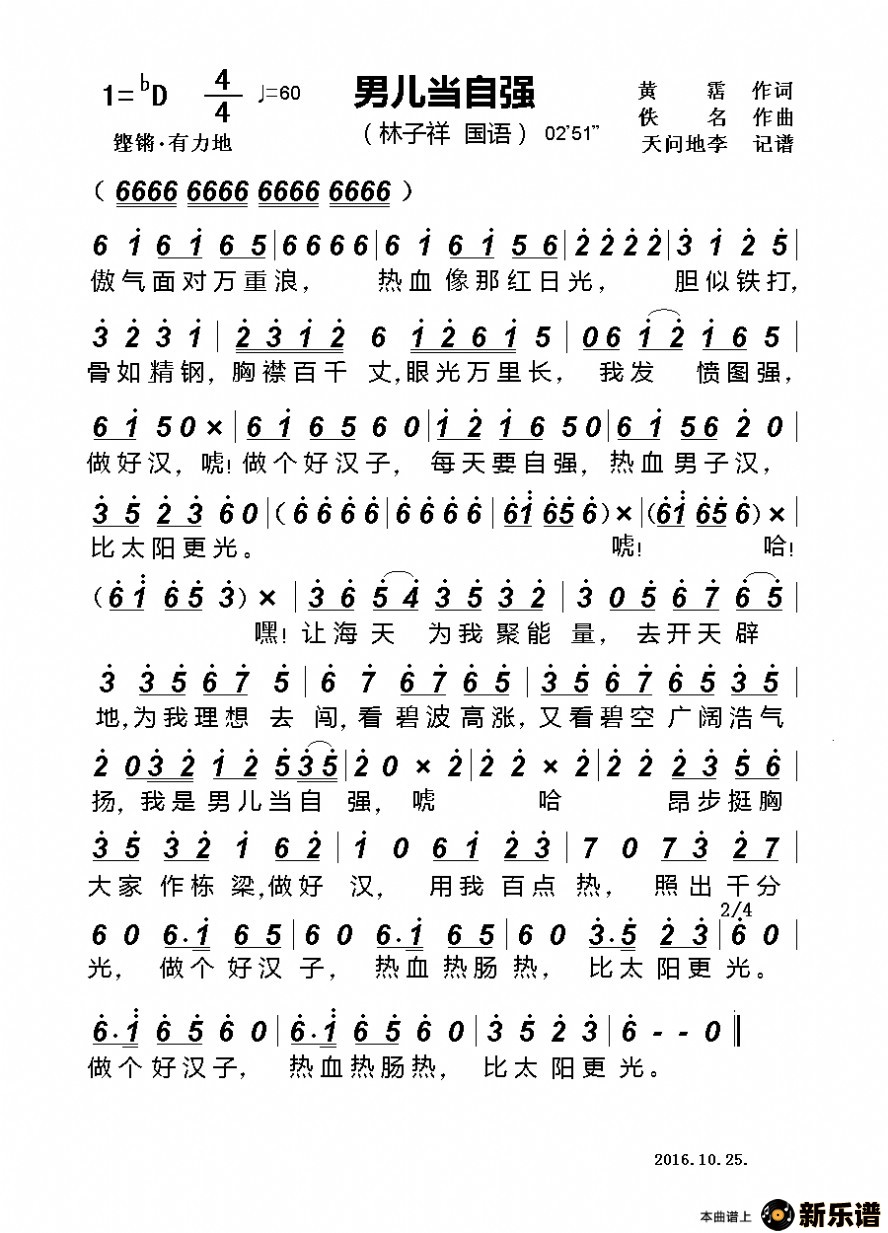 1=♭D 4/4 ♩=60 男儿当自强 黄霑 作词
（林子祥 国语） 02'51” 佚名 作曲
铿锵·有力地 天问地李 记谱
（6666 6666 6666 6666）
6 1 6 1 6 5 | 6 6 6 6 | 6 1 6 1 5 6 | 2 2 2 2 | 3 1 2 5 |
傲气面对万重浪， 热血像那红日光， 胆似铁打，
3 2 3 1 | 2 3 1 2 6 1 2 6 1 5 | 0 6 1 2 1 6 5 |
骨如精钢，胸襟百千丈，眼光万里长， 我发 愤图强，
6 1 5 0 × | 6 1 6 5 6 0 | 1 2 1 6 5 0 | 6 1 5 6 2 0 |
做好汉，唬！做个好汉子， 每天要自强，热血男子汉，
3 5 2 3 6 0 | （6 6 6 6 | 6 6 6 6 | 6 1 6 5 6）× | （6 1 6 5 6）× |
比太阳更光。 唬！ 哈！
（6 1 6 5 3）× | 3 6 5 4 3 5 3 2 | 3 0 5 6 7 6 5 |
嘿！让海天 为我聚能量， 去开天辟
3 3 5 6 7 5 | 6 7 6 7 6 5 | 3 5 6 7 6 5 3 5 |
地，为我理想去闯，看碧波高涨，又看碧空广阔浩气
2 0 3 2 1 2 5 3 5 | 2 0 × 2 | 2 2 × 2 | 2 2 2 3 5 6 |
扬，我是男儿当自 强，唬 哈 昂步挺胸
3 5 3 2 1 6 2 | 1 0 6 1 2 3 | 7 0 7 3 2 7 |
大家作栋梁，做好汉， 用我百点热， 照出千分
2/4
6 0 6·1 6 5 | 6 0 6·1 6 5 | 6 0 3·5 2 3 | 6 0 |
光， 做个好汉子， 热血热肠热， 比太阳更光。
6·1 6 5 6 0 | 6·1 6 5 6 0 | 3 5 2 3 | 6 - - 0 ‖
做个好汉子， 热血热肠热， 比太阳更光。
2016.10.25.
本曲谱上 新乐谱